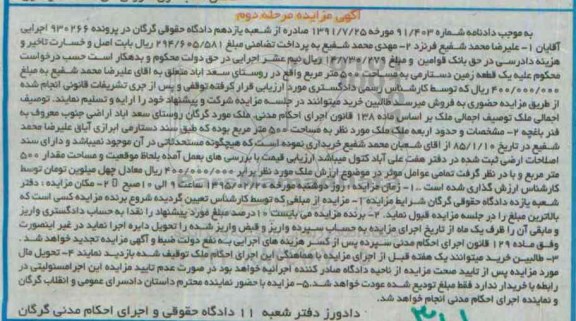 آگهی مزایده مرحله دوم
به موجب دادنامه شماره ۹۱/۴۰۳ مورخه ۱۳۹۱/۷/۲۵ صادره از شعبه یازدهم دادگاه حقوقی گرگان در پرونده ۹۳۰۲۶۶ اجرایی
آقایان ۱- علیرضا محمد شفیع فرنزد ۲- مهدی محمد شفیع به پرداخت تضامنی مبلغ ۲۹۴/۶۰۵/۵۸۱ ریال بابت اصل و خسارت تاخیر و
هزینه دادرسی در حق بانک قوامین و مبلغ ۱۴/۷۳۰/۲۷۹ ریال نیم عشر اجرایی در حق دولت محکوم و بدهکار است حسب درخواست
محکوم علیه یک قطعه زمین دستارمی به مساحت ۵۰۰ متر مربع واقع در روستای سعد آباد متعلق به آقای علیرضا محمد شفیع به مبلغ
۴۰۰/۰۰۰/۰۰۰ ریال که توسط کارشناس رسمی دادگستری مورد ارزیابی قرار گرفته توقفی و پس از جری تشریفات قانونی انجام شده
از طریق مزایده حضوری به فروش میرسد طالبین خرید میتوانند در جلسه مزایده شرکت و پیشنهاد خود را ارایه و تسلیم نمایند. توصیف
اجمالی ملک توصیف اجمالی ملک بر اساس ماده ۱۳۸ قانون اجرای احکام مدنی. ملک مورد گرگان روستای سعد اباد اراضی جنوب معروف به
فنر باغچه ۲- مشخصات و حدود اربعه ملک ملک مورد نظر به مساحت ۵۰۰ متر مربع بوده که طبق سند دستارمی ابرازی آبای علیرضا محمد
شفیع در تاریخ ۸۵/۱/۱۰ از اقای شعبان محمد شفیع خریداری نموده است که هیچگونه مستحدثاتی در آن موجود نمیباشد و دارای سند
اصلاحات ارضی ثبت شده در دفتر هفت علی آباد کتول میباشد ارزیابی قیمت با بررسی های بعمل آمده بلحاظ موقعیت و مساحت مقدار ۵۰۰
متر مربع و با در نظر گرفت تمامی عوامل موثر در موضوع ارزش ملک مورد نظر برابر ۴۰۰/۰۰۰/۰۰۰ ریال معادل چهل میلیون تومان توسط
کارشناس ارزش گذاری شده است. ۱- زمان مزایده: روز دوشنبه مورخه ۱۳۹۵/۰۲/۲۰ ساعت ۹ الی ۱۰ صبح ۲- مکان مزایده: دفتر
شعبه یازده دادگاه حقوقی گرگان شرایط مزایده ۱- مزایده از مبلغی که توسط کارشناس تعیین گردیده شروع برنده مزایده کسی است که
بالاترین مبلغ را در جلسه مزایده قبول نماید. ۲- برنده مزایده می بایست ۱۰ درصد مبلغ مورد پیشنهاد را نقدا به حساب دادگستری واریز
و مابقی آن را ظرف یک ماه از تاریخ اجرای مزایده به حساب سپرده واریز و قبض واریز شده را تحویل دایره اجرا نماید در غیر اینصورت
وفق ماده ۱۲۹ قانون اجرای احکام مدنی سپرده پس از کسر هزینه های اجرایی به نفع دولت ضبط و آگهی مزایده تجدید خواهد شد.
۳- طالبین خرید میتوانند یک هفته قبل از اجرای مزایده با هماهنگی این اجرای احکام ملک توقیف شده بازدید نمایند ۴- تحویل مال
مورد مزایده پس از تایید صحت مزایده از ناحیه دادگاه صادر کننده اجرائیه خواهد بود در صورت عدم تایید مزایده این اجرا مسئولیتی در
رابطه با خریدار ندارد فقط مبلغ تودیع شده عودت خواهد شد. ۵- مزایده با حضور نماینده محترم داستان دادسرای عمومی و انقلاب گرگان
و نماینده اجرای احکام مدنی انجام خواهد شد.
دادورز دفتر شعبه ۱۱ دادگاه حقوقی و اجرای احکام مدنی گرگان